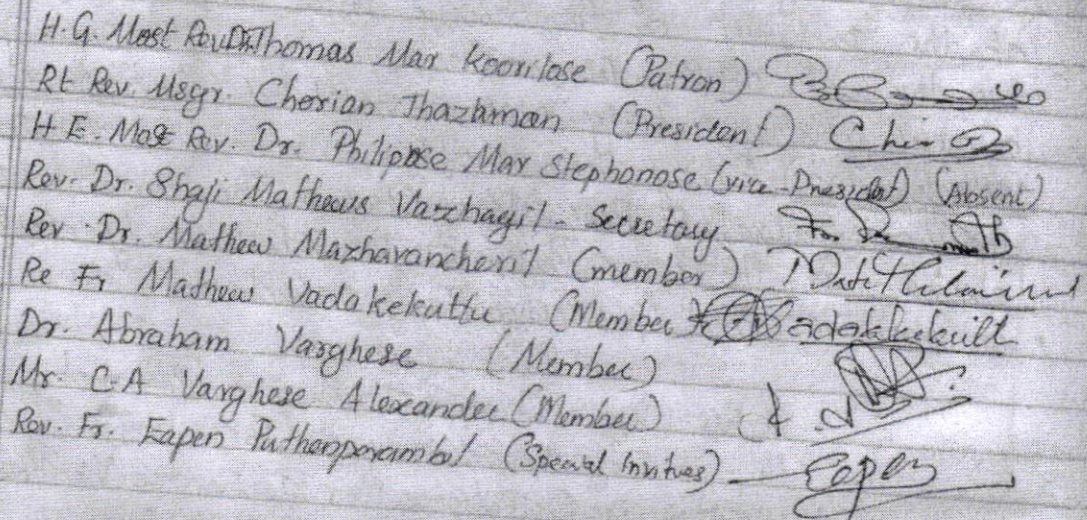 H.G. Most Rev Dr. Thomas Mar Koorilose (Patron)
Rt Rev. Msgr. Cherian Thazhaman (President)
H.E. Most Rev. Dr. Philipose Mar Stephonose (Vice-President) (Absent)
Rev. Dr. Shaji Mathews Vazhayil - Secretary Fr.
Rev. Dr. Mathew Mazhavancheril (member)
Re Fr Mathew Vadakekuttu (Member) Vadakkekuttu
Dr. Abraham Varghese (Member)
Mr. C.A Varghese Alexander (Member)
Rev. Fr. Eapen Puthenparambil (Special Invitees) Eapen